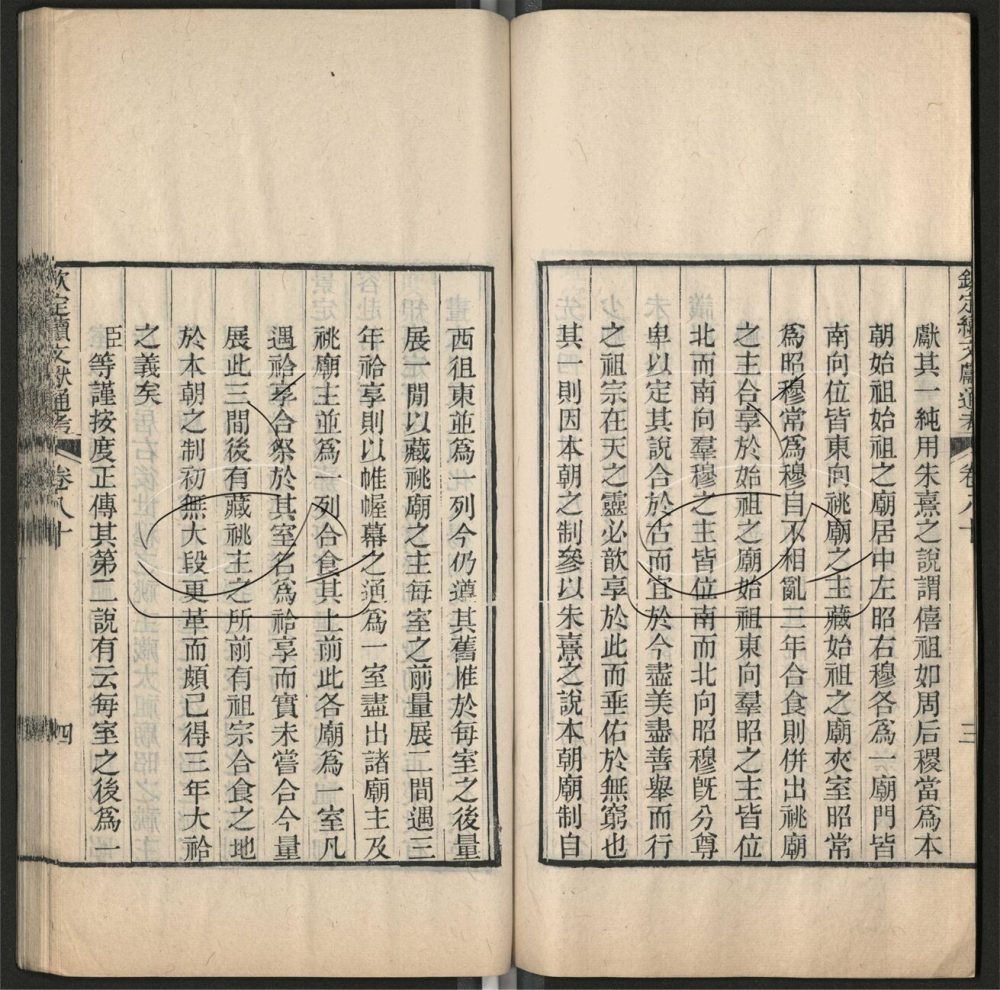 欽定續文獻通考 卷八十 三
獻其一純用朱熹之說謂僖祖如周后稷當爲本
朝始祖始祖之廟居中左昭右穆各爲一廟門皆
南向位皆東向祧廟之主藏始祖之廟夾室昭常
爲昭穆常爲穆自不相亂三年合食則併出祧廟
之主合享於始祖之廟始祖東向羣昭之主皆位
北而南向羣穆之主皆位南而北向昭穆旣分尊
卑以定其說合於古而宜於今盡美盡善舉而行
之祖宗在天之靈必歆享於此而垂佑於無窮也
其一則因本朝之制參以朱熹之說本朝廟制自
西徂東並爲一列今仍遵其舊惟於每室之後量
展一閒以藏祧廟之主每室之前量展二間遇三
年祫享則以帷幄幕之通爲一室盡出諸廟主及
祧廟主並爲一列合食其上前此各廟爲一室凡
遇祫享合祭於其室名爲祫享而實未嘗合今量
展此三間後有藏祧主之所前有祖宗合食之地
於本朝之制初無大段更革而頗已得三年大祫
之義矣
臣等謹按度正傳其第二說有云每室之後爲一
欽定續文獻通考 卷八十 四